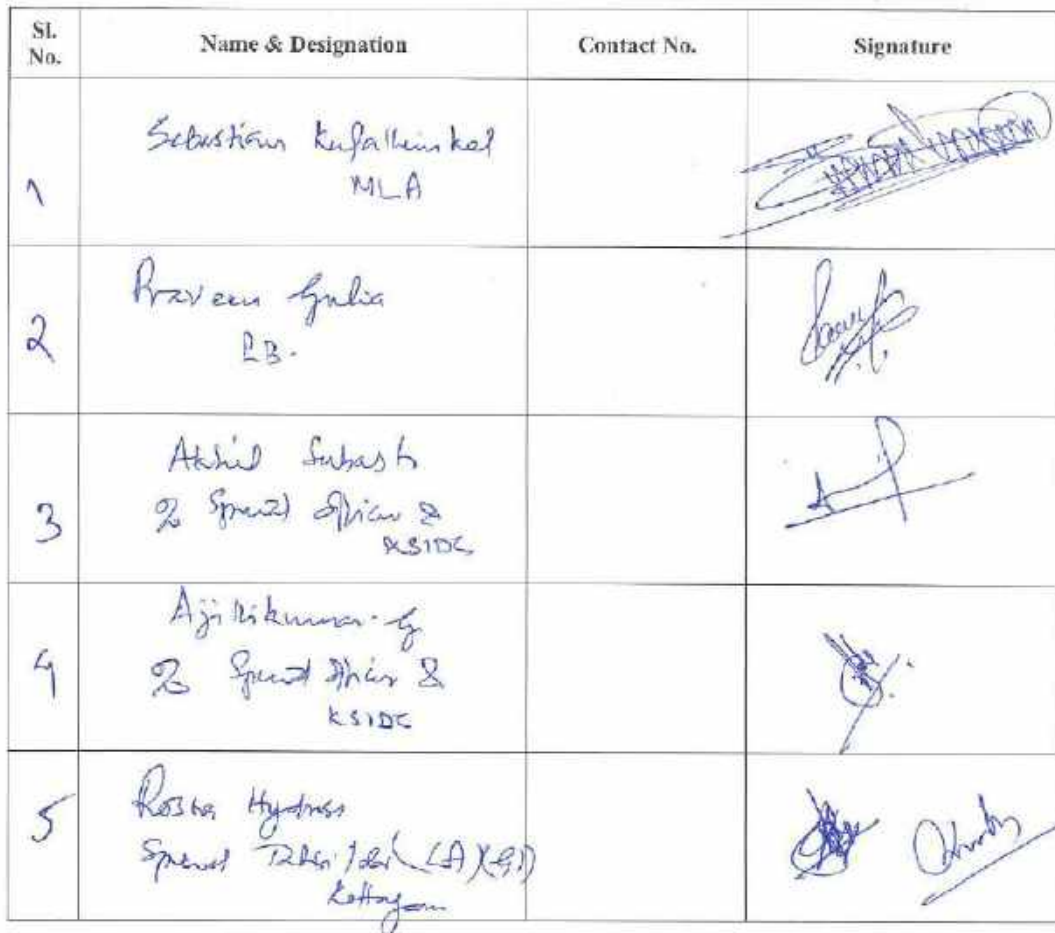 Sl. No. Name & Designation Contact No. Signature
1 Sebastian Kulathunkal
MLA
2 Praveen Gulia
3 Akhil Subash
% Special Officer
KSIDC
4 Ajithkumar. G
% Special Officer
KSIDC
5 Hydross
Special (LA)
Kottayam